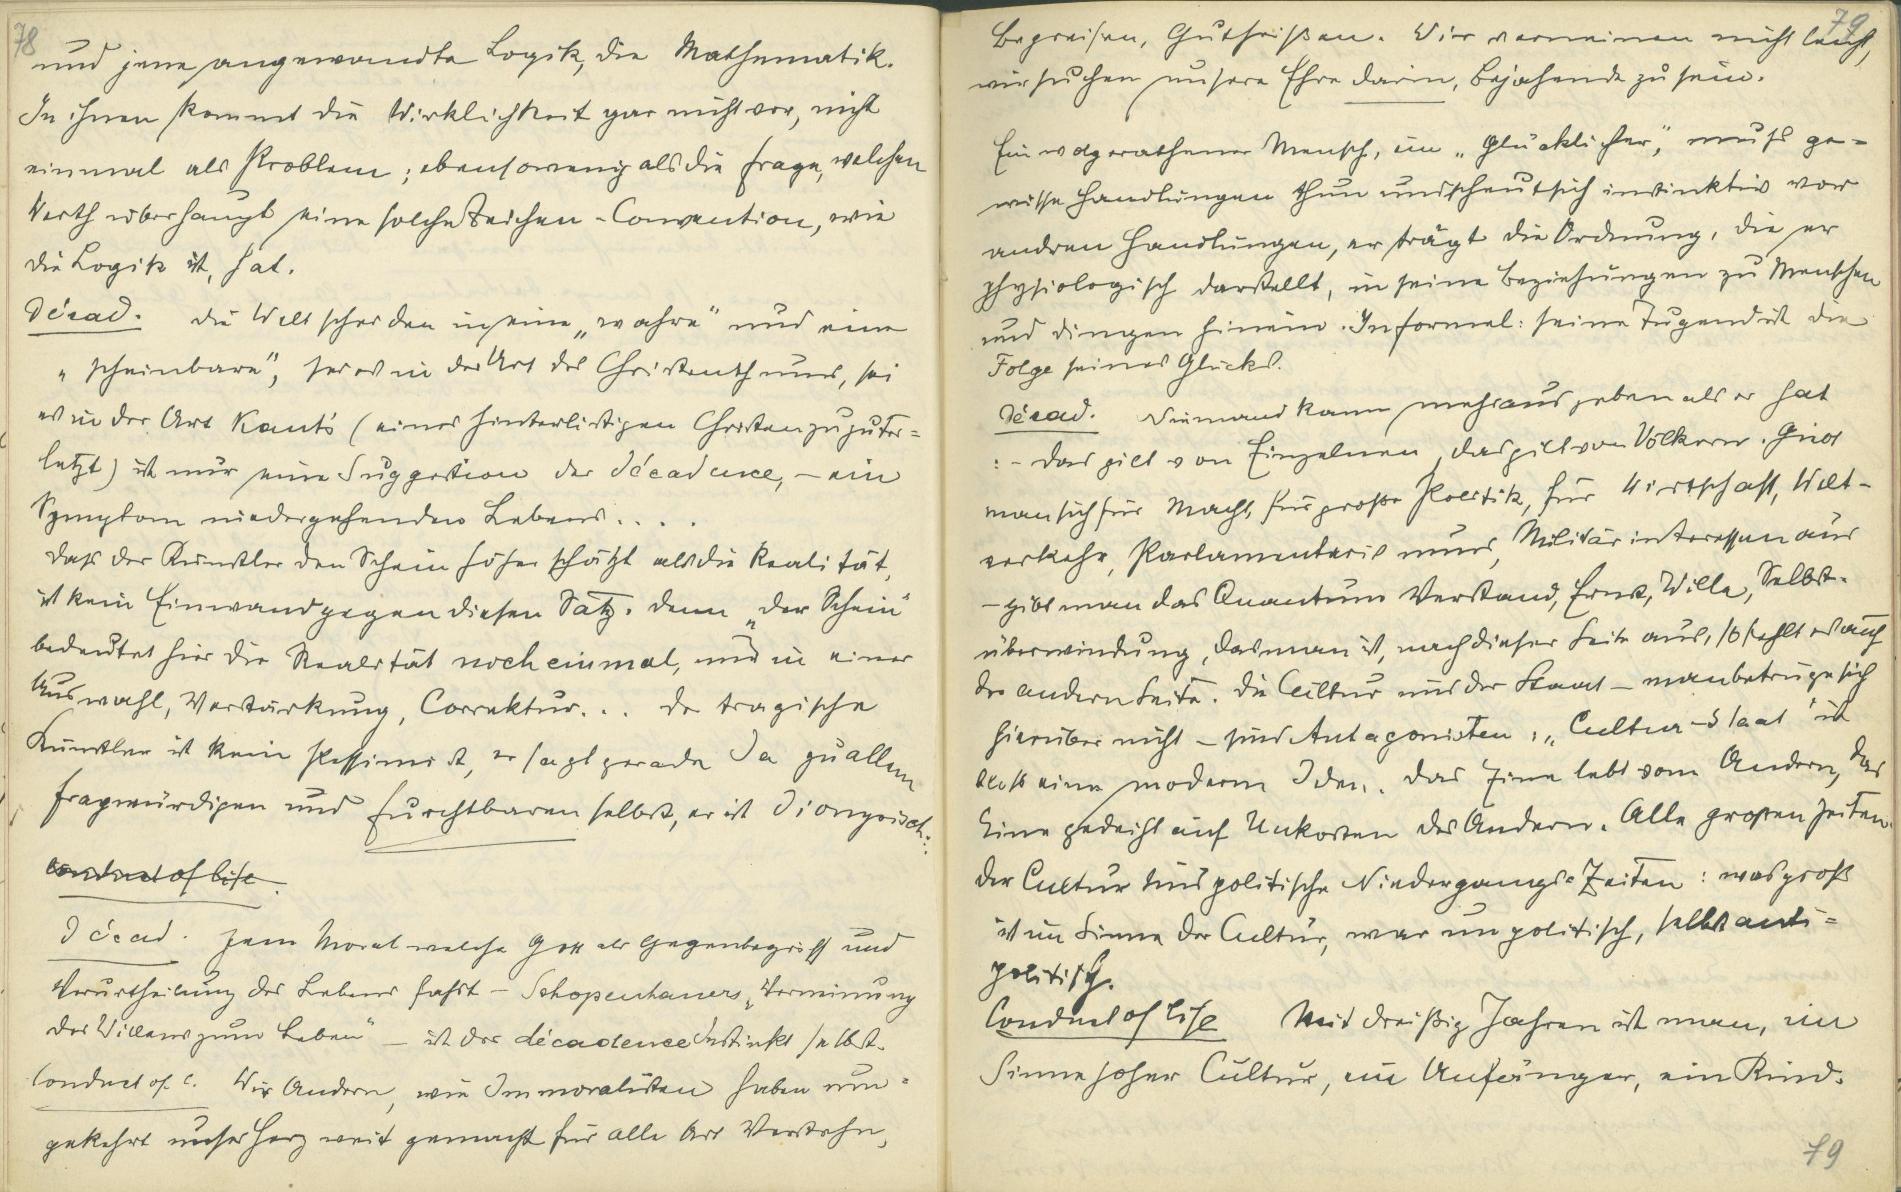 78
und jene angewandte Logik, die Mathematik.
In ihnen kommt die Wirklichkeit gar nicht vor, nicht
einmal als Problem; ebensowenig als die Frage, welchen
Werth überhaupt eine solche Zeichen-Convention, wie
die Logik ist, hat.
Décad. Die Welt scheiden in eine „wahre" und eine
„scheinbare", sei es in der Art des Christenthums, sei
es in der Art Kant's (eines hinterlistigen Christen zu guter=
letzt) ist nur eine Suggestion der décadence, – ein
Symptom niedergehenden Lebens....
Dass der Künstler den Schein höher schätzt als die Realität,
ist kein Einwand gegen diesen Satz. Denn „der Schein"
bedeutet hier die Realität noch einmal, nur in einer
Auswahl, Verstärkung, Correktur... Der tragische
Künstler ist kein Pessimist, er sagt gerade Ja zu allem
Fragwürdigen und Furchtbaren selbst, er ist dionysisch...
Conduct of life.
Décad. Jene Moral welche Gott als Gegenbegriff und
Verurtheilung des Lebens fasst – Schopenhauers „Verneinung
des Willens zum Leben" – ist der décadence Instinkt selbst.
Conduct of l. Wir Andern, wir Immoralisten haben um=
gekehrt unser Herz weit gemacht für alle Art Verstehn,
79
Begreifen, Gutheißen. Wir verneinen nicht leicht,
wir suchen unsere Ehre darin, Bejahende zu sein.
Ein wolgerathener Mensch, ein „Glücklicher", muss ge=
wisse Handlungen thun und scheut sich instinktiv vor
andren Handlungen, er trägt die Ordnung, die er
physiologisch darstellt, in seine Beziehungen zu Menschen
und Dingen hinein. In Formel: seine Tugend ist die
Folge seines Glücks.
Décad. Niemand kann mehr ausgeben als er hat
: – das gilt von Einzelnen, das gilt von Völkern. Giebt
man sich für Macht, für große Politik, für Wirtschaft, Welt-
verkehr, Parlamentarismus, Militärinteressen aus
– gibt man das Quantum Verstand, Ernst, Wille, Selbst-
überwindung, das man ist, nach dieser Seite aus, so fehlt es auf
der andern Seite. Die Cultur und der Staat – man betrüge sich
hierüber nicht – sind Antagonisten: „Cultur-Staat" ist
bloß eine moderne Idee. Das Eine lebt vom Andern, das
Eine gedeiht auf Unkosten des Andern. Alle großen Zeiten
der Cultur sind politische Niedergangs-Zeiten: was groß
ist im Sinne der Cultur, war unpolitisch, selbst anti=
politisch.
Conduct of life Mit dreißig Jahren ist man, im
Sinne hoher Cultur, ein Anfänger, ein Kind.
79